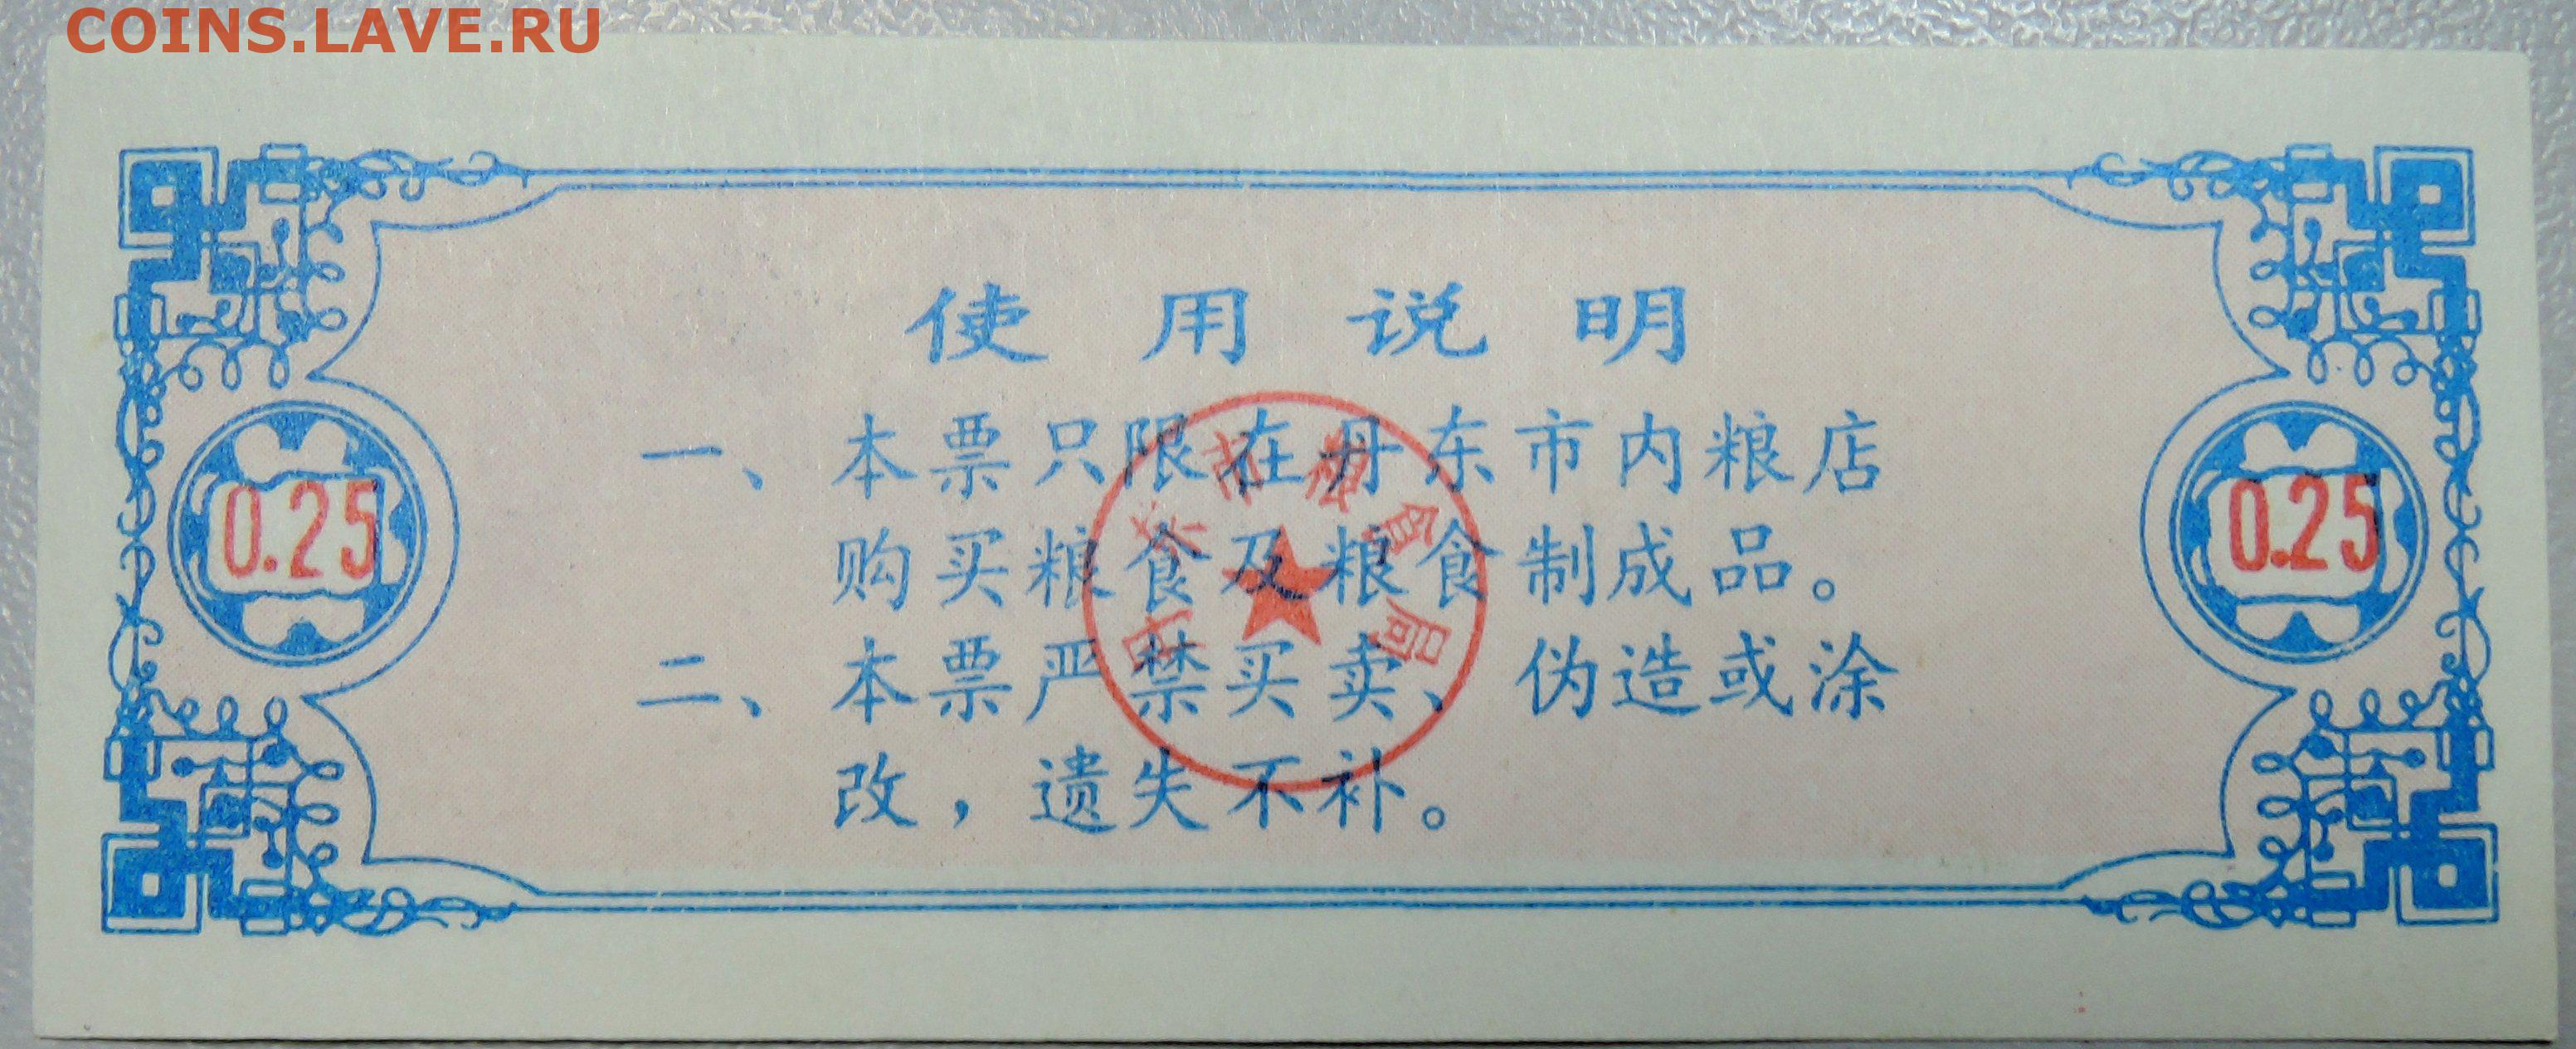 COINS.LAVE.RU
使用说明
一、本票只限在丹东市内粮店
购买粮食及粮食制成品。
二、本票严禁买卖、伪造或涂
改，遗失不补。
0.25
0.25
丹东市粮食局